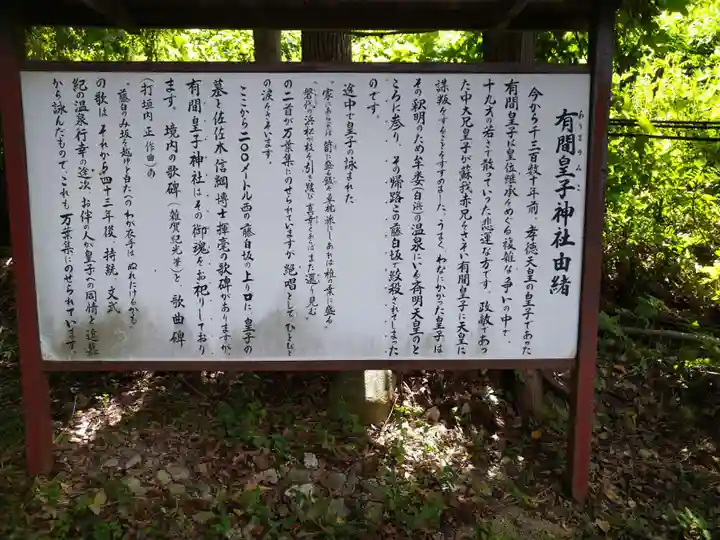 有間皇子神社由緒
ありまのみこ
今から千三百数十年前、孝徳天皇の皇子であった
有間皇子は皇位継承をめぐる複雑な争いの中で、
十九才の若さで散っていった悲運な方です。政敵であっ
た中大兄皇子が蘇我赤兄をさそい有間皇子に天皇に
謀叛をすることをすすめました。うまく、わなにかかった皇子は
その釈明のため牟婁(白浜)の温泉にいる斉明天皇のと
ころに参り、その帰路この藤白坂で絞殺されてしまった
のです。
途中で皇子の詠まれた
"家にあらば笥に盛る飯を草枕旅にしあれば椎の葉に盛る
"磐代の浜松が枝を引き結び真幸くあらばまた還り見む
の二首が万葉集にのせられていますが絶唱として、ひとびと
の涙をさそいます。
ここから二〇〇メートル西の藤白坂の上り口に、皇子の
墓と佐佐木信綱博士揮毫の歌碑がありますが、
有間皇子神社はその御魂をお祀りしており
ます。境内の歌碑(雑賀紀光筆)と、歌曲碑
(打垣内正作曲)の
"藤白のみ坂を越ゆと白たへのわが衣手は ぬれにけるかも"
の歌は それから四十三年後、持統・文武
紀の温泉行幸の途次、お伴の人が皇子への同情と追慕
から詠んだもので、これも万葉集にのせられています。